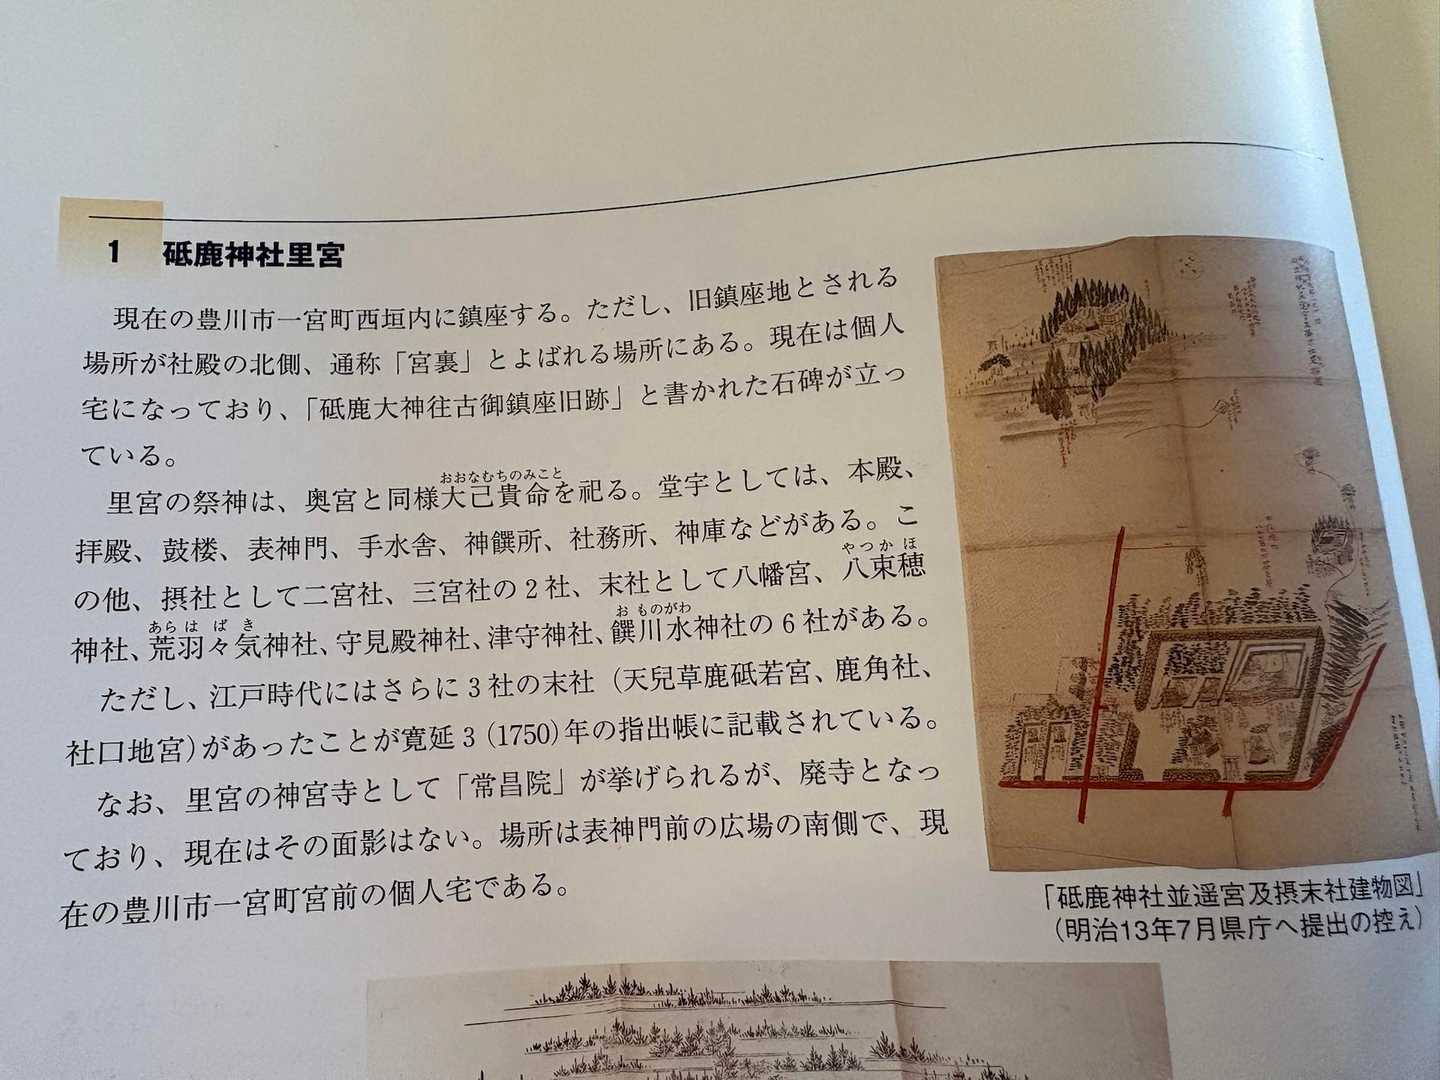 1 砥鹿神社里宮
現在の豊川市一宮町西垣内に鎮座する。ただし、旧鎮座地とされる
場所が社殿の北側、通称「宮裏」とよばれる場所にある。現在は個人
宅になっており、「砥鹿大神往古御鎮座旧跡」と書かれた石碑が立っ
ている。
おおなむちのみこと
里宮の祭神は、奥宮と同様大己貴命を祀る。堂宇としては、本殿、
拝殿、鼓楼、表神門、手水舎、神饌所、社務所、神庫などがある。こ
やつかほ
の他、摂社として二宮社、三宮社の2社、末社として八幡宮、八束穂
あらはばき おものがわ
神社、荒羽々気神社、守見殿神社、津守神社、饌川水神社の6社がある。
ただし、江戸時代にはさらに3社の末社（天兒草鹿砥若宮、鹿角社、
社口地宮）があったことが寛延3（1750）年の指出帳に記載されている。
なお、里宮の神宮寺として「常昌院」が挙げられるが、廃寺となっ
ており、現在はその面影はない。場所は表神門前の広場の南側で、現
在の豊川市一宮町宮前の個人宅である。
「砥鹿神社並遥宮及摂末社建物図」
（明治13年7月県庁へ提出の控え）